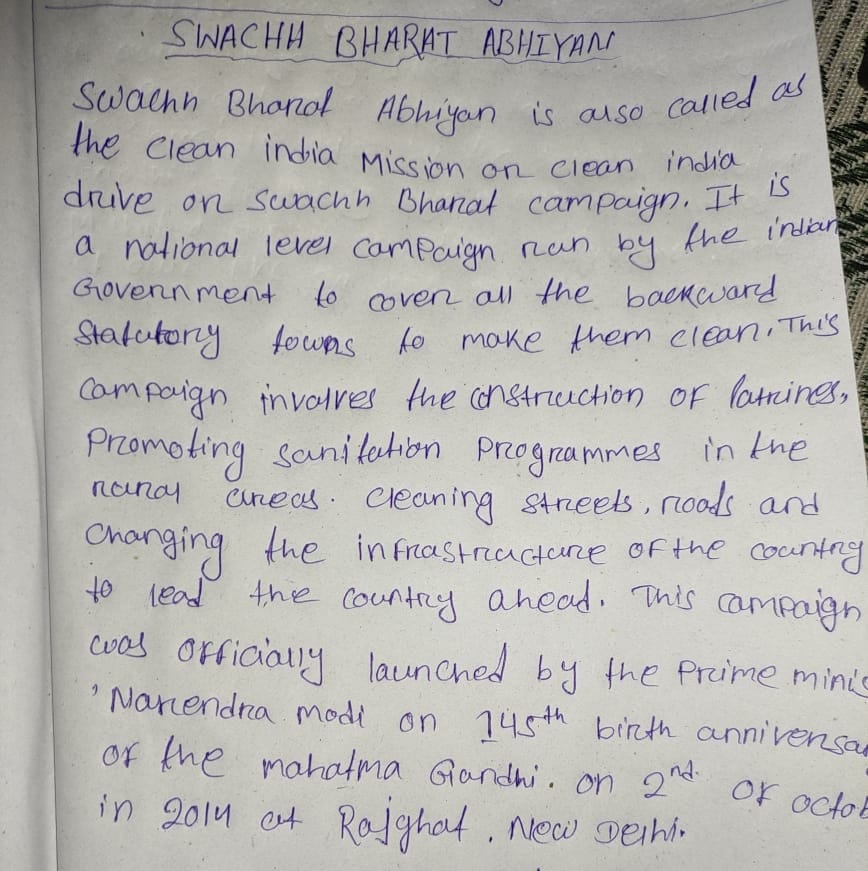 SWACHH BHARAT ABHIYAN
Swachh Bharat Abhiyan is also called as
the clean india Mission on clean india
drive on swachh Bharat campaign. It is
a national level campaign run by the indian
Government to cover all the backward
Statutory towns to make them clean. This
campaign involves the construction of latrines,
Promoting sanitation Programmes in the
rural areas. cleaning streets, roads and
Changing the infrastructure of the country
to lead the country ahead. This campaign
was officially launched by the Prime minis
'Narendra modi on 145th birth anniversa
of the mahatma Gandhi. on 2nd. of octob
in 2014 at Rajghat, New Delhi.